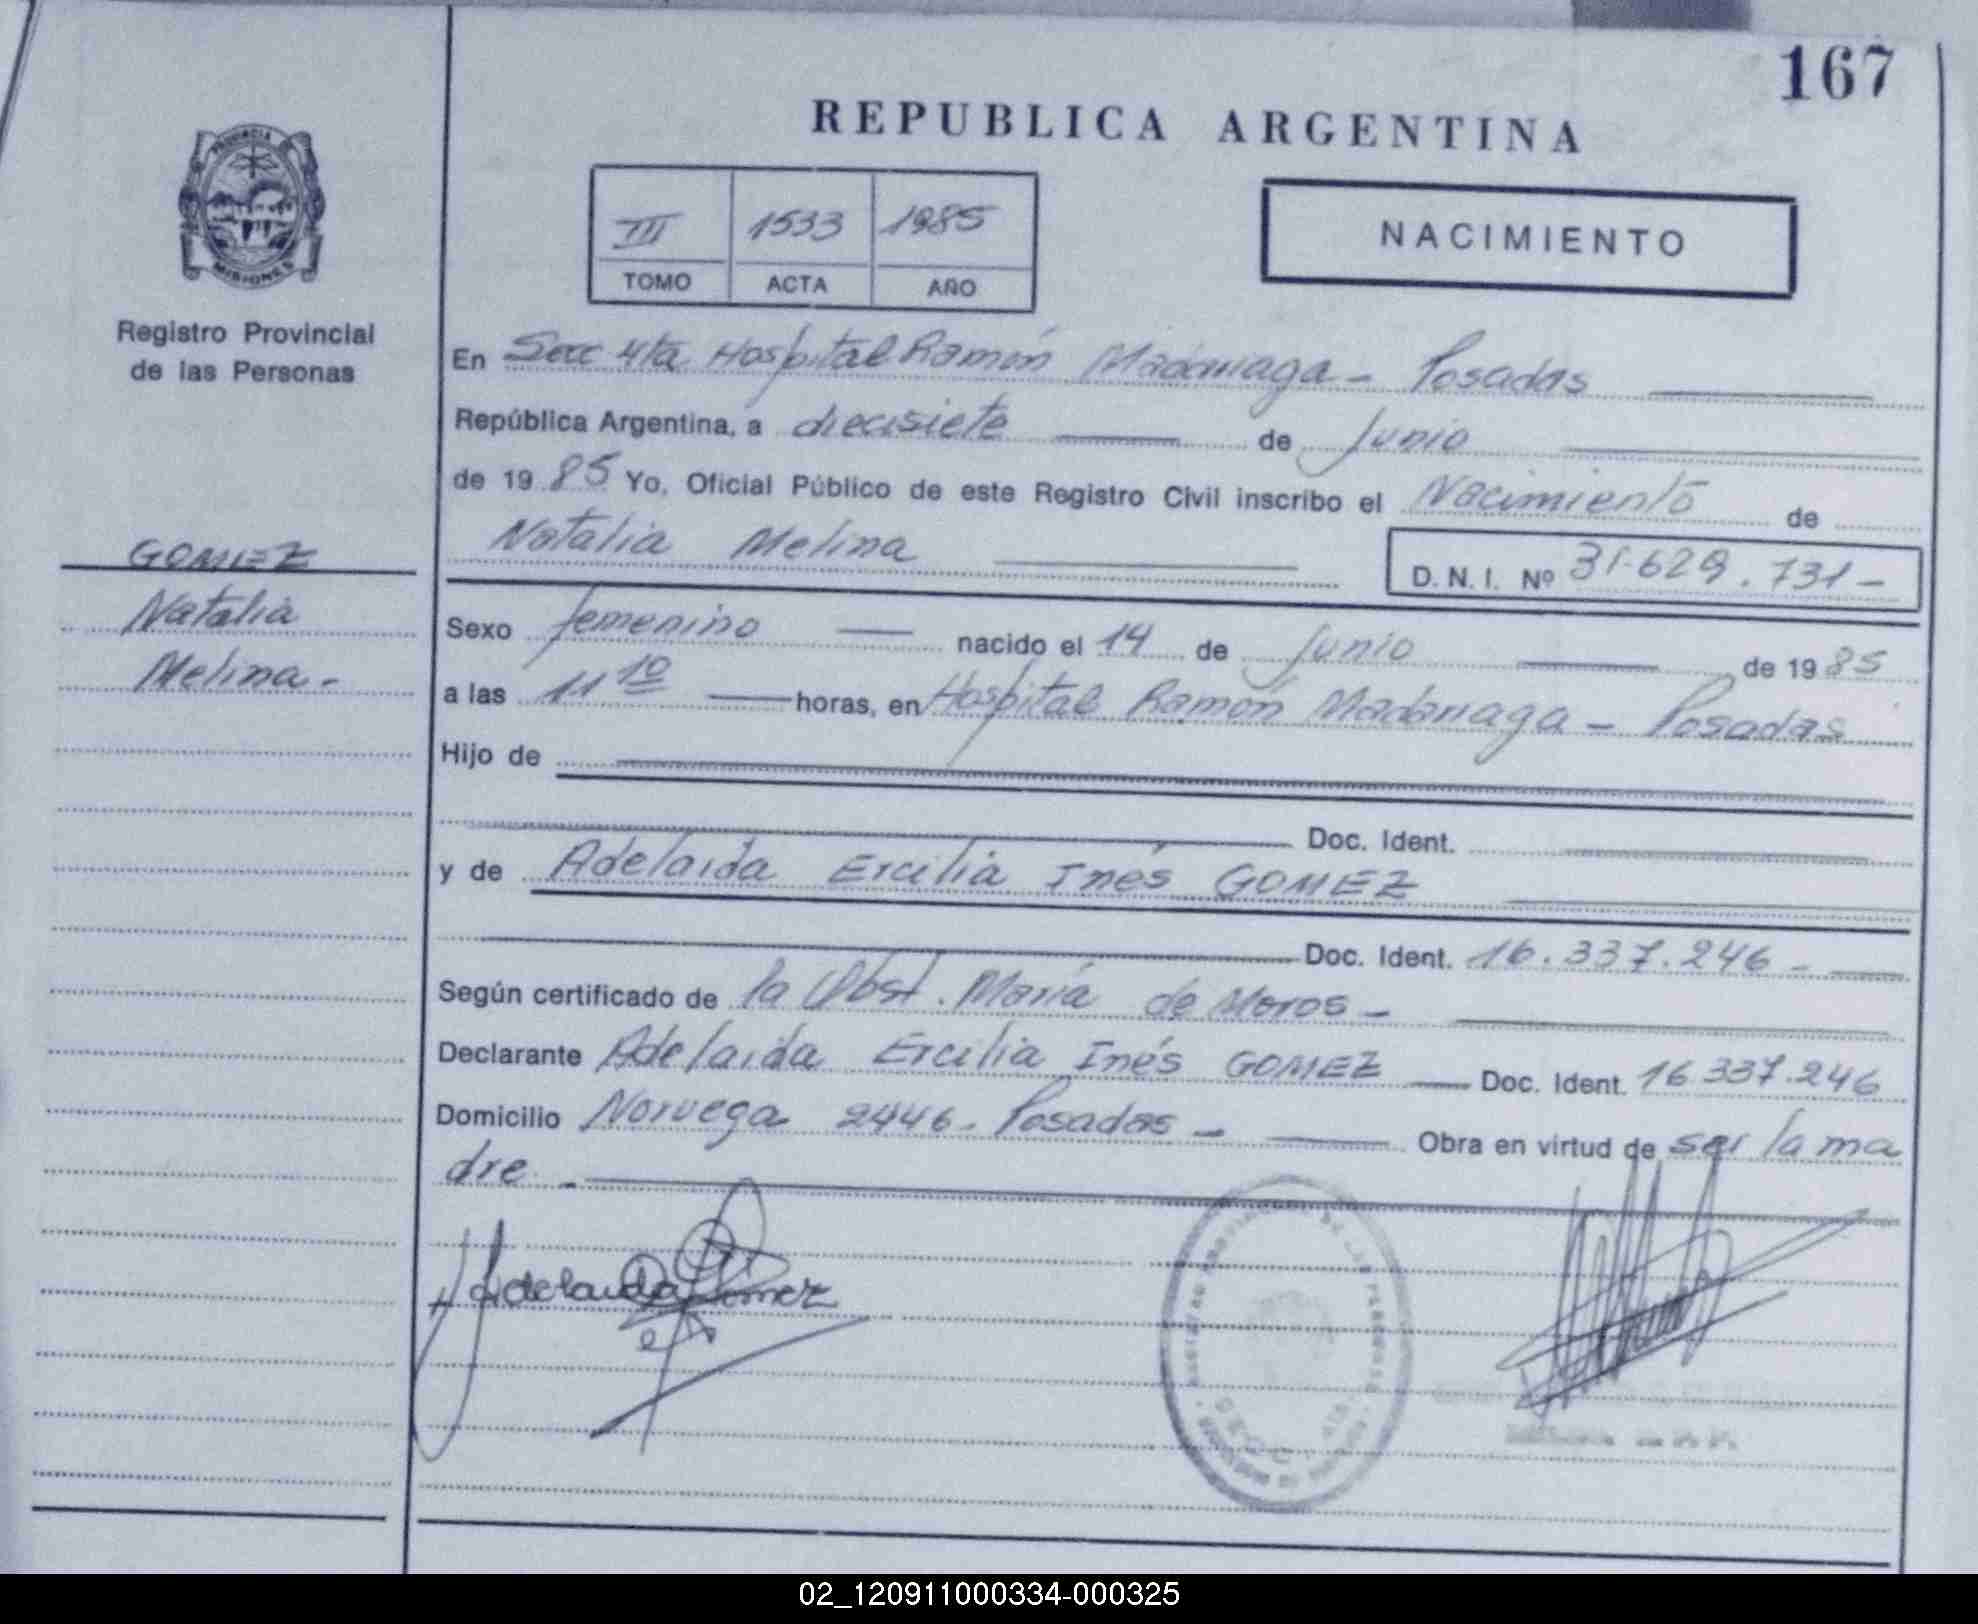 167
REPUBLICA ARGENTINA
PROVINCIA
MISIONES
III 1533 1985
TOMO ACTA AÑO
NACIMIENTO
Registro Provincial
de las Personas
GOMEZ
Natalia
Melina -
En Secc 4ta Hospital Ramón Madariaga - Posadas
República Argentina, a diecisiete de Junio
de 19 85 Yo, Oficial Público de este Registro Civil inscribo el Nacimiento de
Natalia Melina D. N. I. Nº 31.629.731-
Sexo femenino nacido el 14 de Junio de 19 85
a las 11 10 horas, en Hospital Ramón Madariaga - Posadas
Hijo de
Doc. Ident.
y de Adelaida Ercilia Inés GOMEZ
Doc. Ident. 16.337.246 -
Según certificado de la Obst. María de Moros -
Declarante Adelaida Ercilia Inés GOMEZ Doc. Ident. 16.337.246
Domicilio Noruega 2446 - Posadas - Obra en virtud de ser la ma
dre -
Adelaida Gomez
02_120911000334-000325